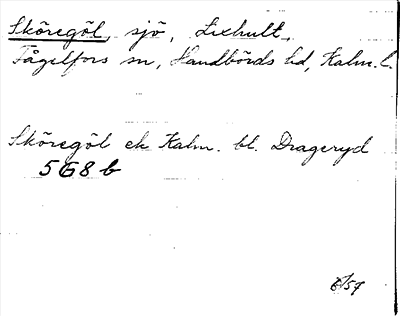 Sköregöl, sjö, Lixhult,
Fågelfors sn, Handbörds hd, Kalm. l.
Sköregöl ek Kalm. bl. Drageryd
5G8b